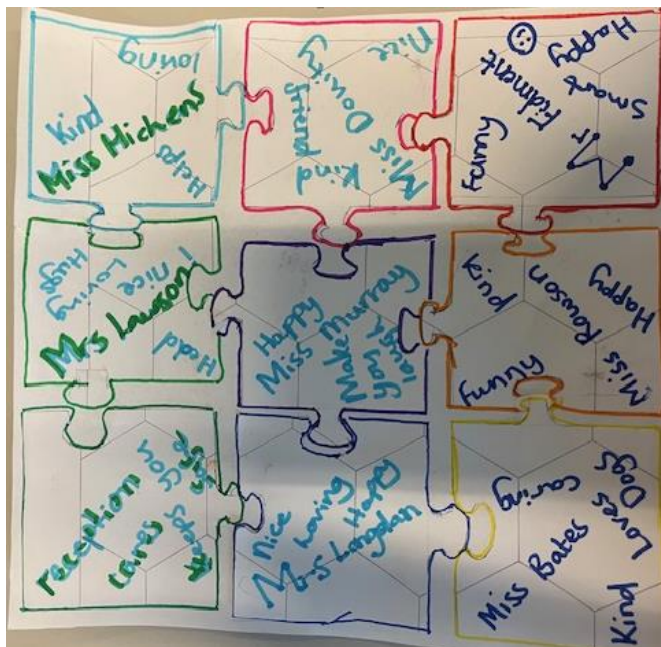 loving
Kind
Miss Hickens
Helps
nice
Miss Dowity
friend
Kind
Happy
Smart
Mr Fidment
funny
Hugs
Loving
nice
Mrs Lawson
Head
Happy
Miss Murray
Make
you
laugh
Kind
Miss Rowson
Happy
funny
reception
cares
keeps
you
safe
nice
Loving
Happy
Mrs Langdan
caring
Loves
Dogs
Miss Bates
Kind